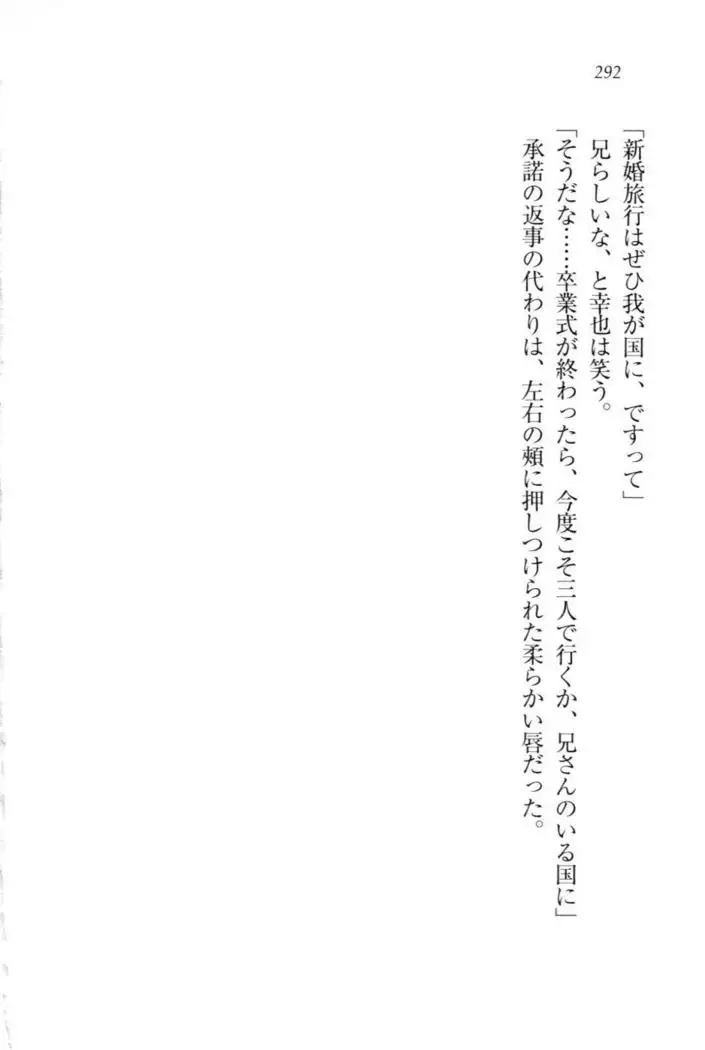 292
「新婚旅行はぜひ我が国に、ですって」
兄らしいな、と幸也は笑う。
「そうだな……卒業式が終わったら、今度こそ三人で行くか、兄さんのいる国に」
承諾の返事の代わりは、左右の頰に押しつけられた柔らかい唇だった。